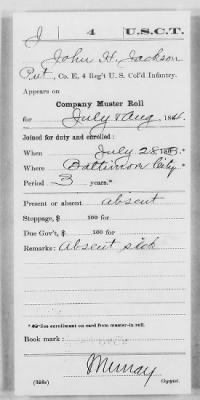 J | 4 | U.S.C.T.
John H. Jackson
Pvt, Co. E, 4 Reg't U. S. Col'd Infantry.
Appears on
Company Muster Roll
for July & Aug, 1864.
Joined for duty and enrolled:
When July 28 1863.*
Where Baltimore City*
Period 3 years.*
Present or absent absent
Stoppage, $ 100 for
Due Gov't, $ 100 for
Remarks: Absent sick
enrollment on card from muster-in roll.
Book mark:
Murray
Copyist.